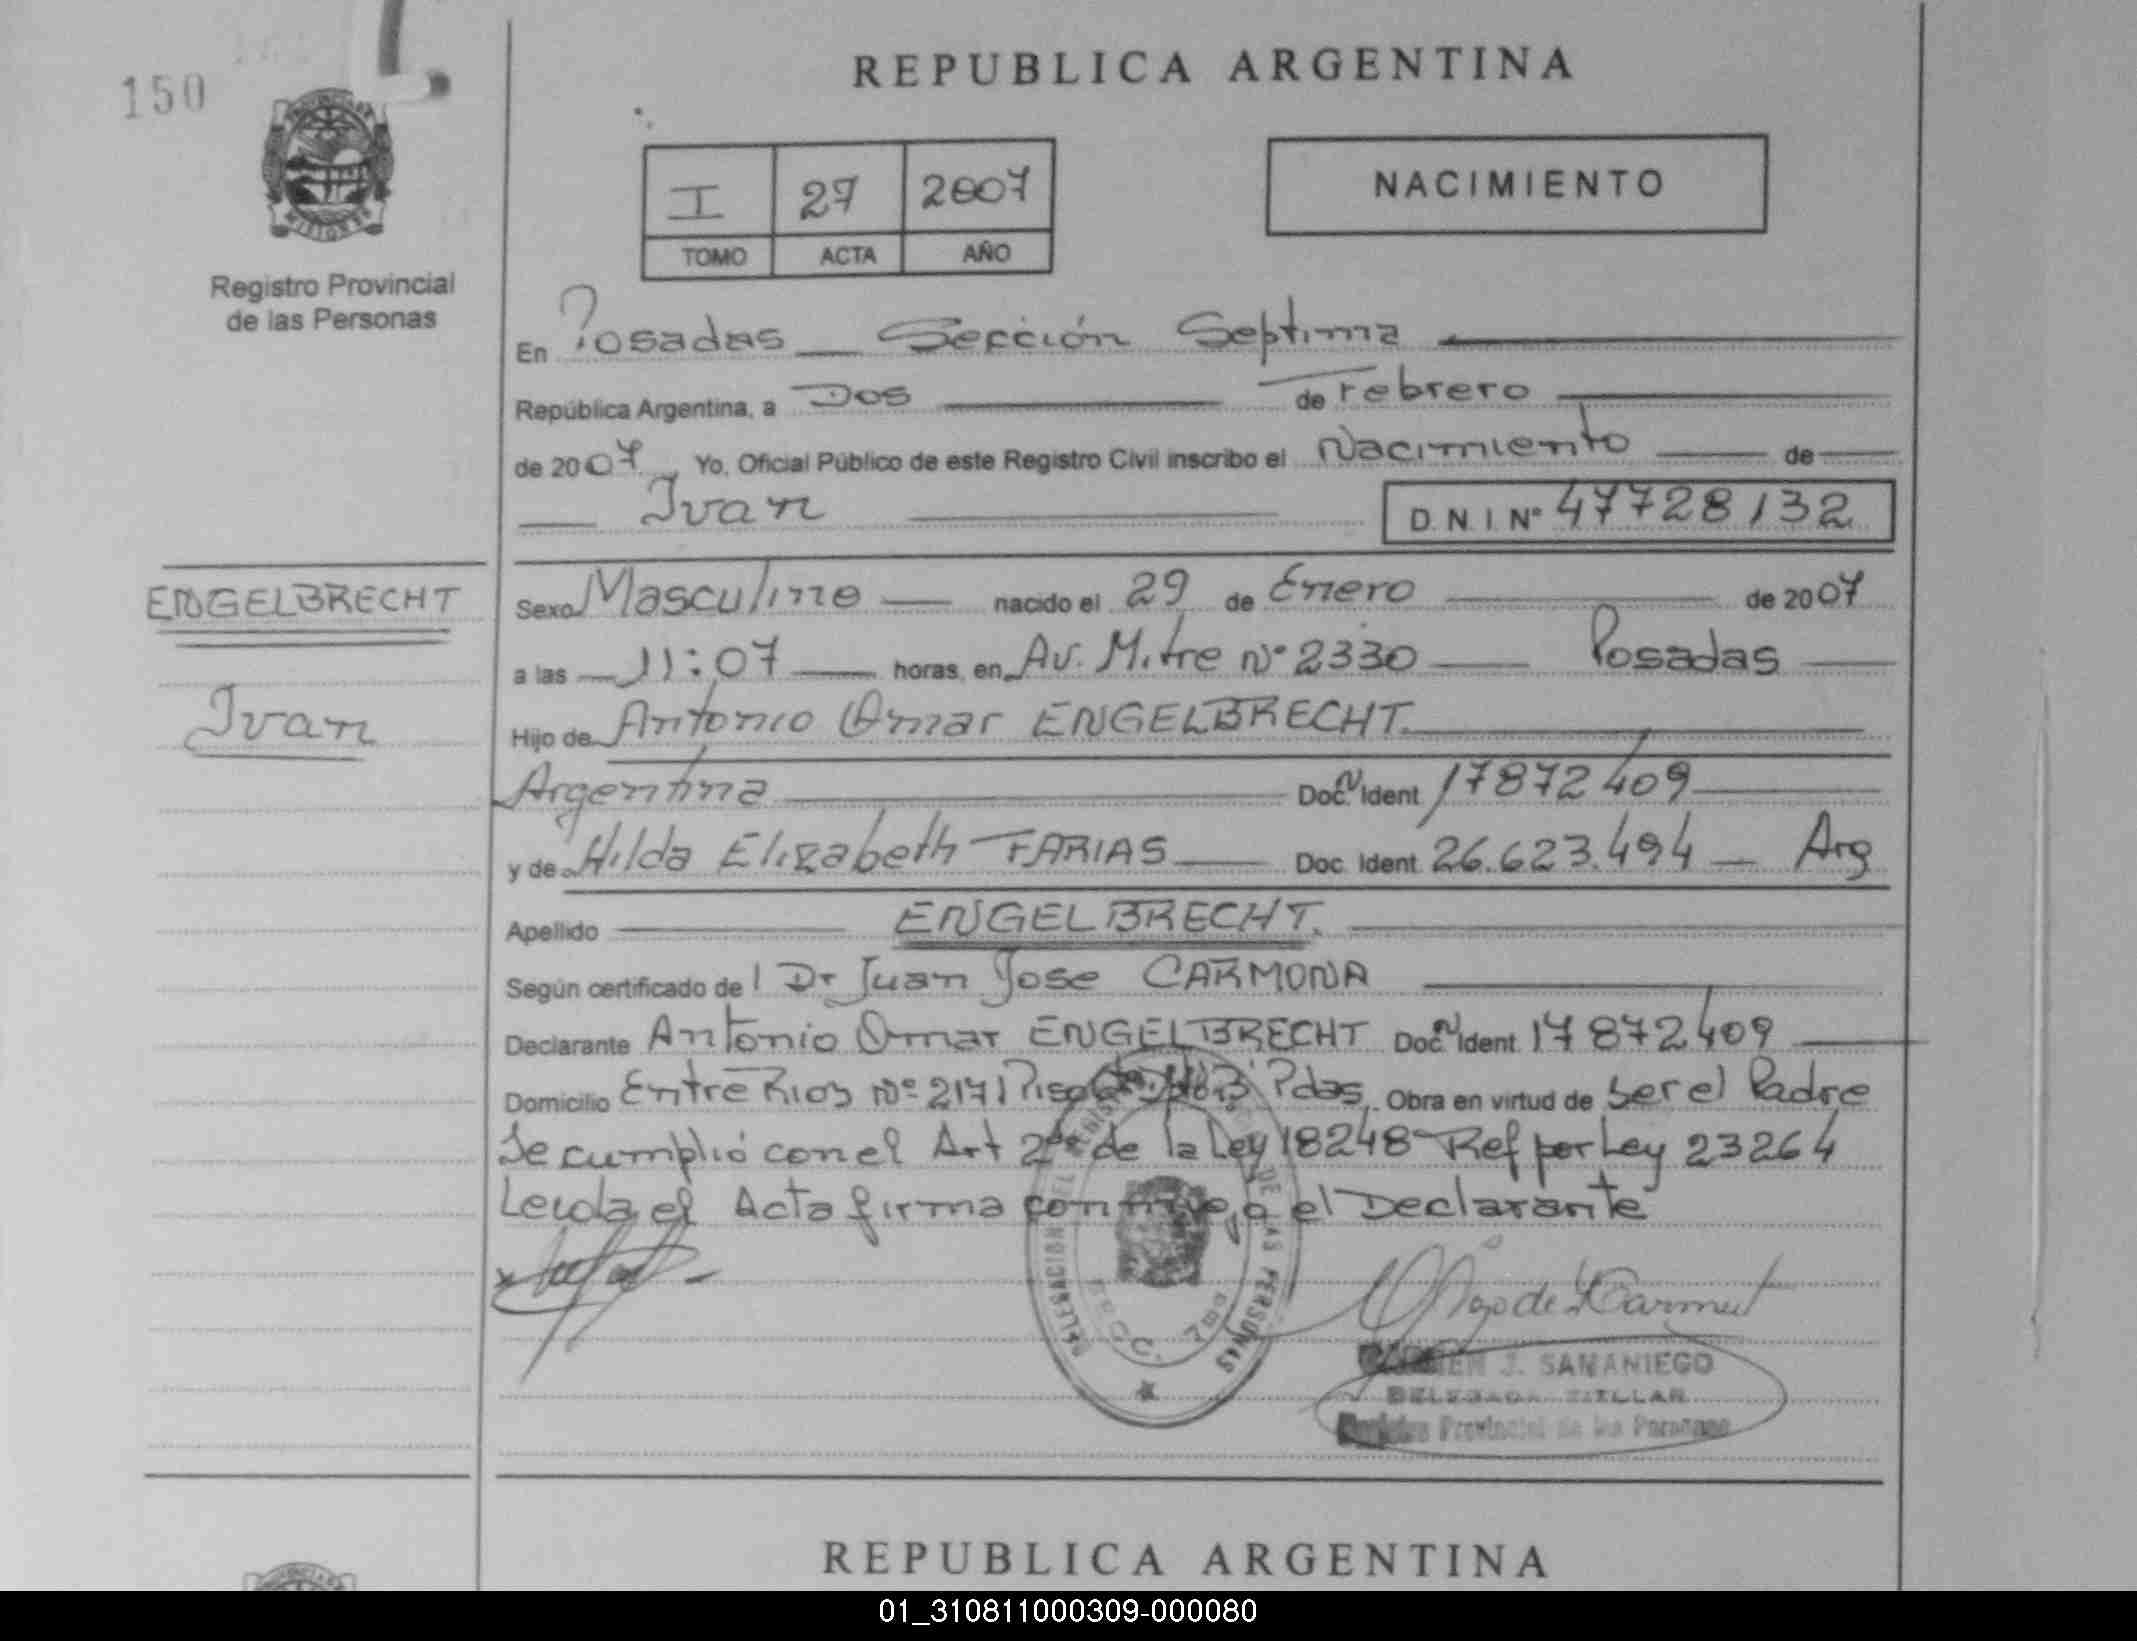 150
REPUBLICA ARGENTINA
I 27 2007
TOMO ACTA AÑO
NACIMIENTO
MISIONES
Registro Provincial
de las Personas
En Posadas Sección Septima
República Argentina, a Dos de Febrero
de 2007 Yo, Oficial Público de este Registro Civil inscribo el Nacimiento de
Ivan D.N.I. Nº 47728132
ENGELBRECHT
Ivan
Sexo Masculino nacido el 29 de Enero de 2007
a las 11:07 horas, en Av. Mitre Nº 2330 Posadas
Hijo de Antonio Omar ENGELBRECHT.
Argentina Doc. Ident 17872409
y de Hilda Elizabeth FARIAS Doc. Ident 26.623.494 Arg
Apellido ENGELBRECHT.
Según certificado del Dr Juan Jose CARMONA
Declarante Antonio Omar ENGELBRECHT Doc. Ident. 17872409
Domicilio Entre Rios Nº 2171 Pdas, Obra en virtud de ser el Padre
Se cumplió con el Art 2do de la Ley 18248 Ref por Ley 23264
Leida el Acta firma conmigo el Declarante
DELEGACION DEL REGISTRO DE LAS PERSONAS
CARMEN J. SAMANIEGO
DELEGADA TITULAR
Registro Provincial de las Personas
REPUBLICA ARGENTINA
01_310811000309-000080